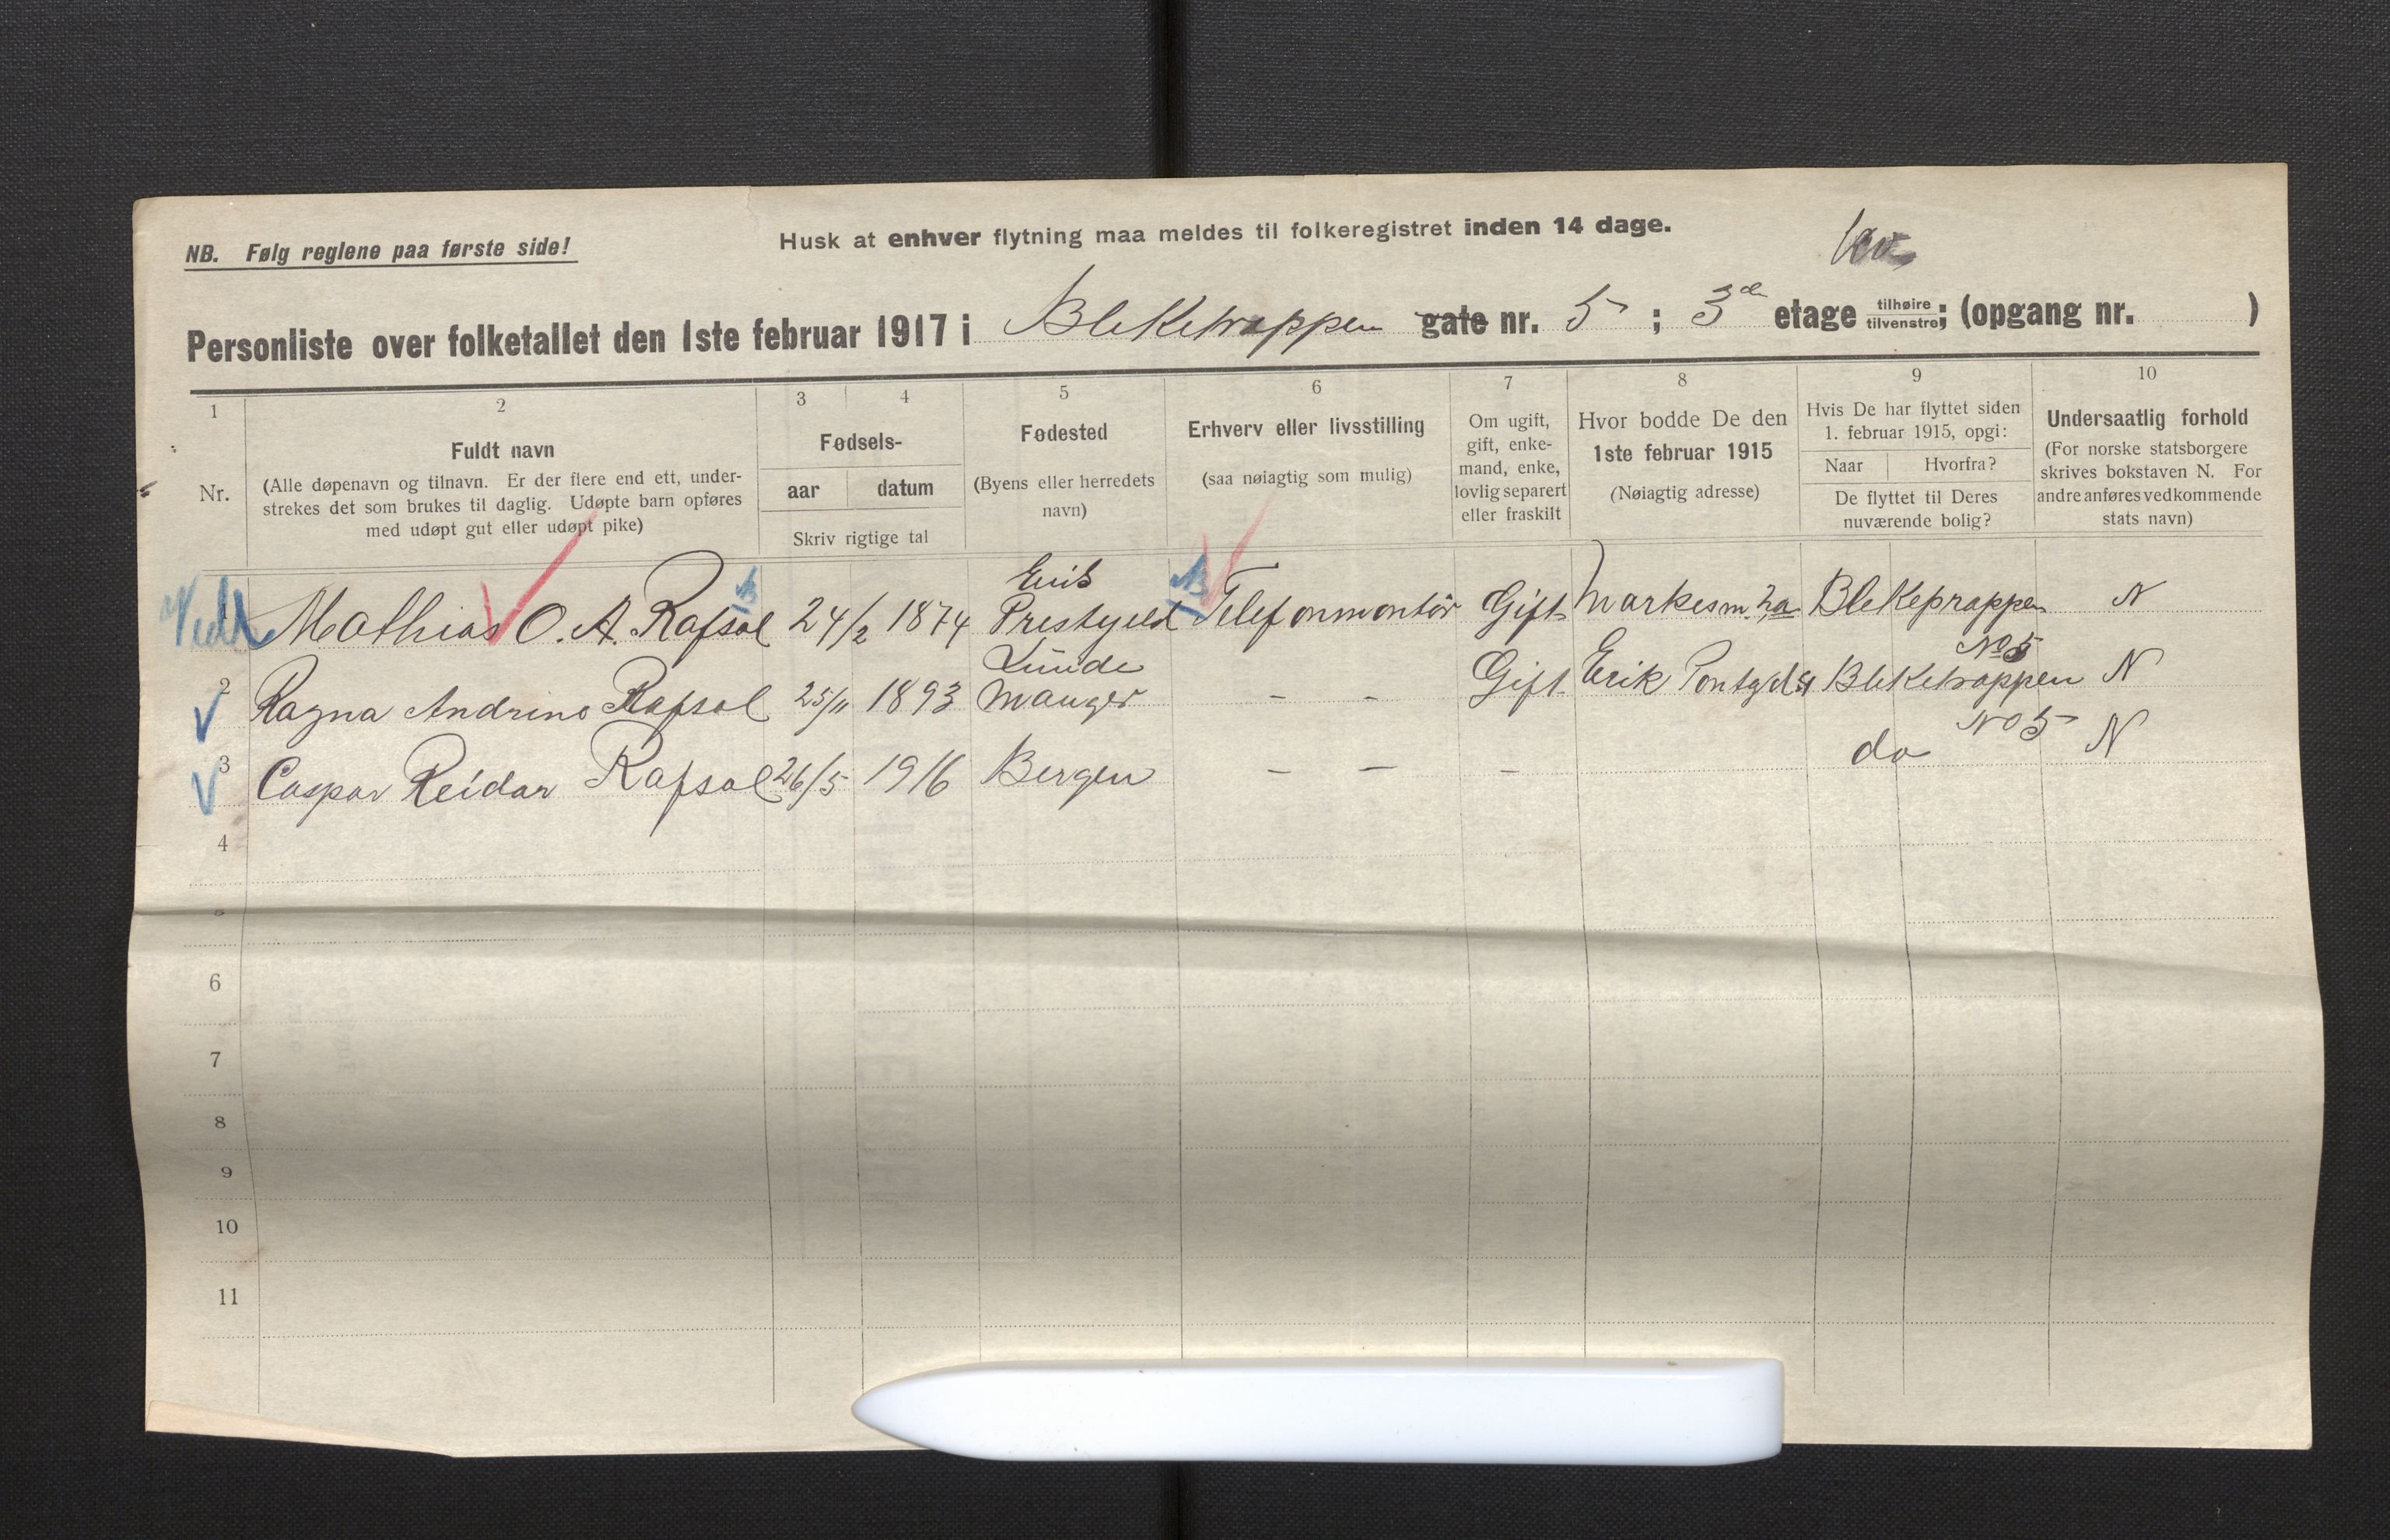 NB. Følg reglene paa første side!
Husk at enhver flytning maa meldes til folkeregistret inden 14 dage.
Personliste over folketallet den 1ste februar 1917 i Bleketrappen gate nr. 5 ; 3de etage tilhøire tilvenstre; (opgang nr. )
1 2 3 4 5 6 7 8 9 10
Nr.
Fuldt navn
(Alle døpenavn og tilnavn. Er der flere end ett, under-
strekes det som brukes til daglig. Udøpte barn opføres
med udøpt gut eller udøpt pike)
Fødsels-
aar datum
Skriv rigtige tal
Fødested
(Byens eller herredets
navn)
Erhverv eller livsstilling
(saa nøiagtig som mulig)
Om ugift,
gift, enke-
mand, enke,
lovlig separert
eller fraskilt
Hvor bodde De den
1ste februar 1915
(Nøiagtig adresse)
Hvis De har flyttet siden
1. februar 1915, opgi:
Naar Hvorfra?
De flyttet til Deres
nuværende bolig?
Undersaatlig forhold
(For norske statsborgere
skrives bokstaven N. For
andre anføres vedkommende
stats navn)
1 Mathias O. A. Rafsal 24/2 1874 Prestgjeld Telefonmontør Gift Markesm. 2a Blekeprappen N
No 5
Lunde
2 Ragna Andrino Rafsal 25/11 1893 Manger - - Gift Erik Bleketrappen N
No 5
3 Caspar Reidar Rafsal 26/5 1916 Bergen - - - do N
4
5
6
7
8
9
10
11